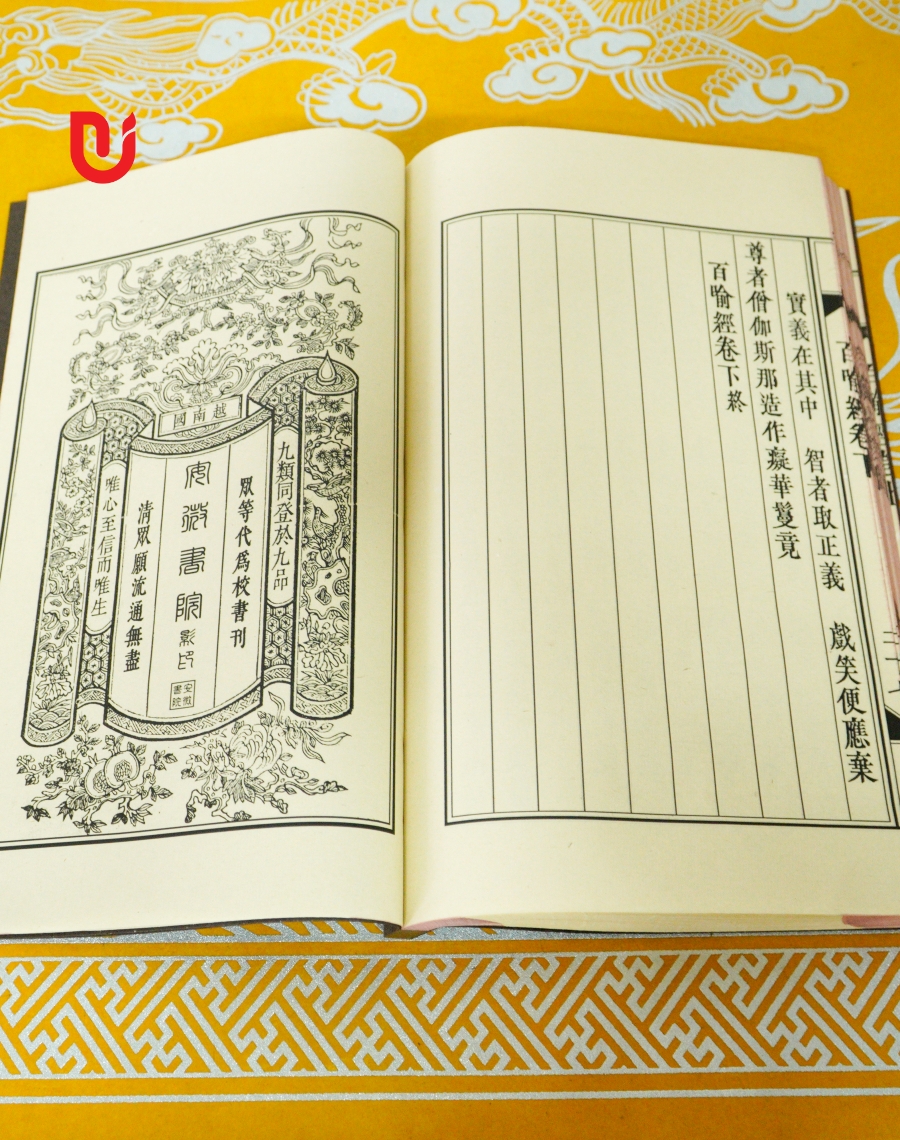 百喻經卷
實義在其中　智者取正義　戲笑便應棄
尊者僧伽斯那造作癡華鬘竟
百喻經卷下終
越南國
九類同登於九品
眾等代爲校書刊
安微書院影印
安微書院
清眾願流通無盡
唯心至信而唯生